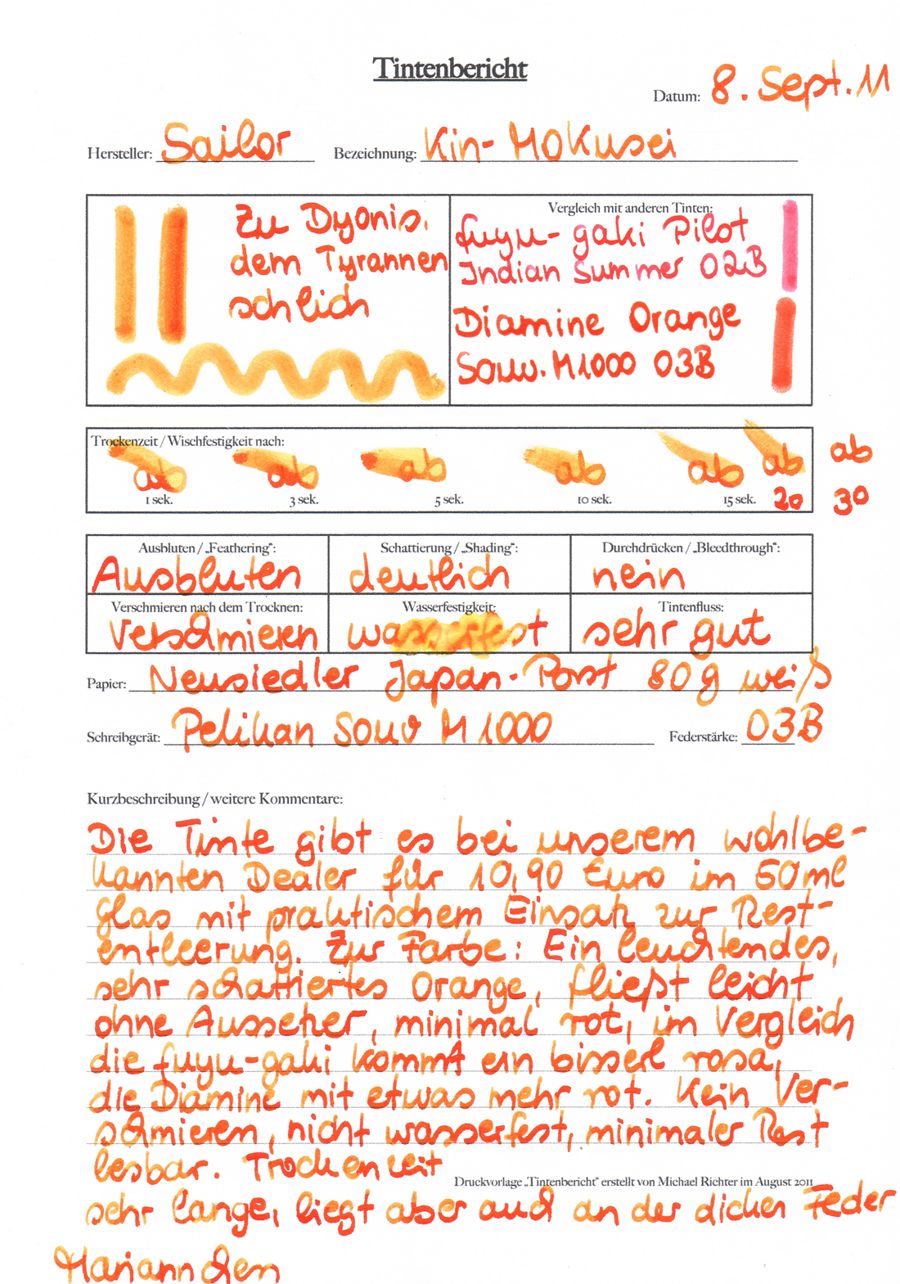 Tintenbericht
Datum: 8. Sept. 11
Hersteller: Sailor Bezeichnung: Kin-Mokusei
Zu Dyonis,
dem Tyrannen
schlich
Vergleich mit anderen Tinten:
fuyu-gaki Pilot
Indian Summer 02B
Diamine Orange
Souv. M1000 03B
Trockenzeit / Wischfestigkeit nach:
ab ab ab ab ab ab ab
1 sek. 3 sek. 5 sek. 10 sek. 15 sek. 20 30
Ausbluten / „Feathering“: Schattierung / „Shading“: Durchdrücken / „Bleedthrough“:
Ausbluten deutlich nein
Verschmieren nach dem Trocknen: Wasserfestigkeit: Tintenfluss:
Verschmieren wasserfest sehr gut
Papier: Neusiedler Japan-Post 80g weiß
Schreibgerät: Pelikan Souv M1000 Federstärke: 03B
Kurzbeschreibung / weitere Kommentare:
Die Tinte gibt es bei unserem wohlbe-
kannten Dealer für 10,90 Euro im 50ml
Glas mit praktischem Einsatz zur Rest-
entleerung. Zur Farbe: Ein leuchtendes,
sehr schattiertes Orange, fließt leicht
ohne Aussetzer, minimal rot, im Vergleich
die fuyu-gaki kommt ein bisserl rosa,
die Diamine mit etwas mehr rot. Kein Ver-
schmieren, nicht wasserfest, minimaler Rest
lesbar. Trockenzeit
Druckvorlage „Tintenbericht“ erstellt von Michael Richter im August 2011
sehr lange, liegt aber auch an der dicken Feder
Mariannchen